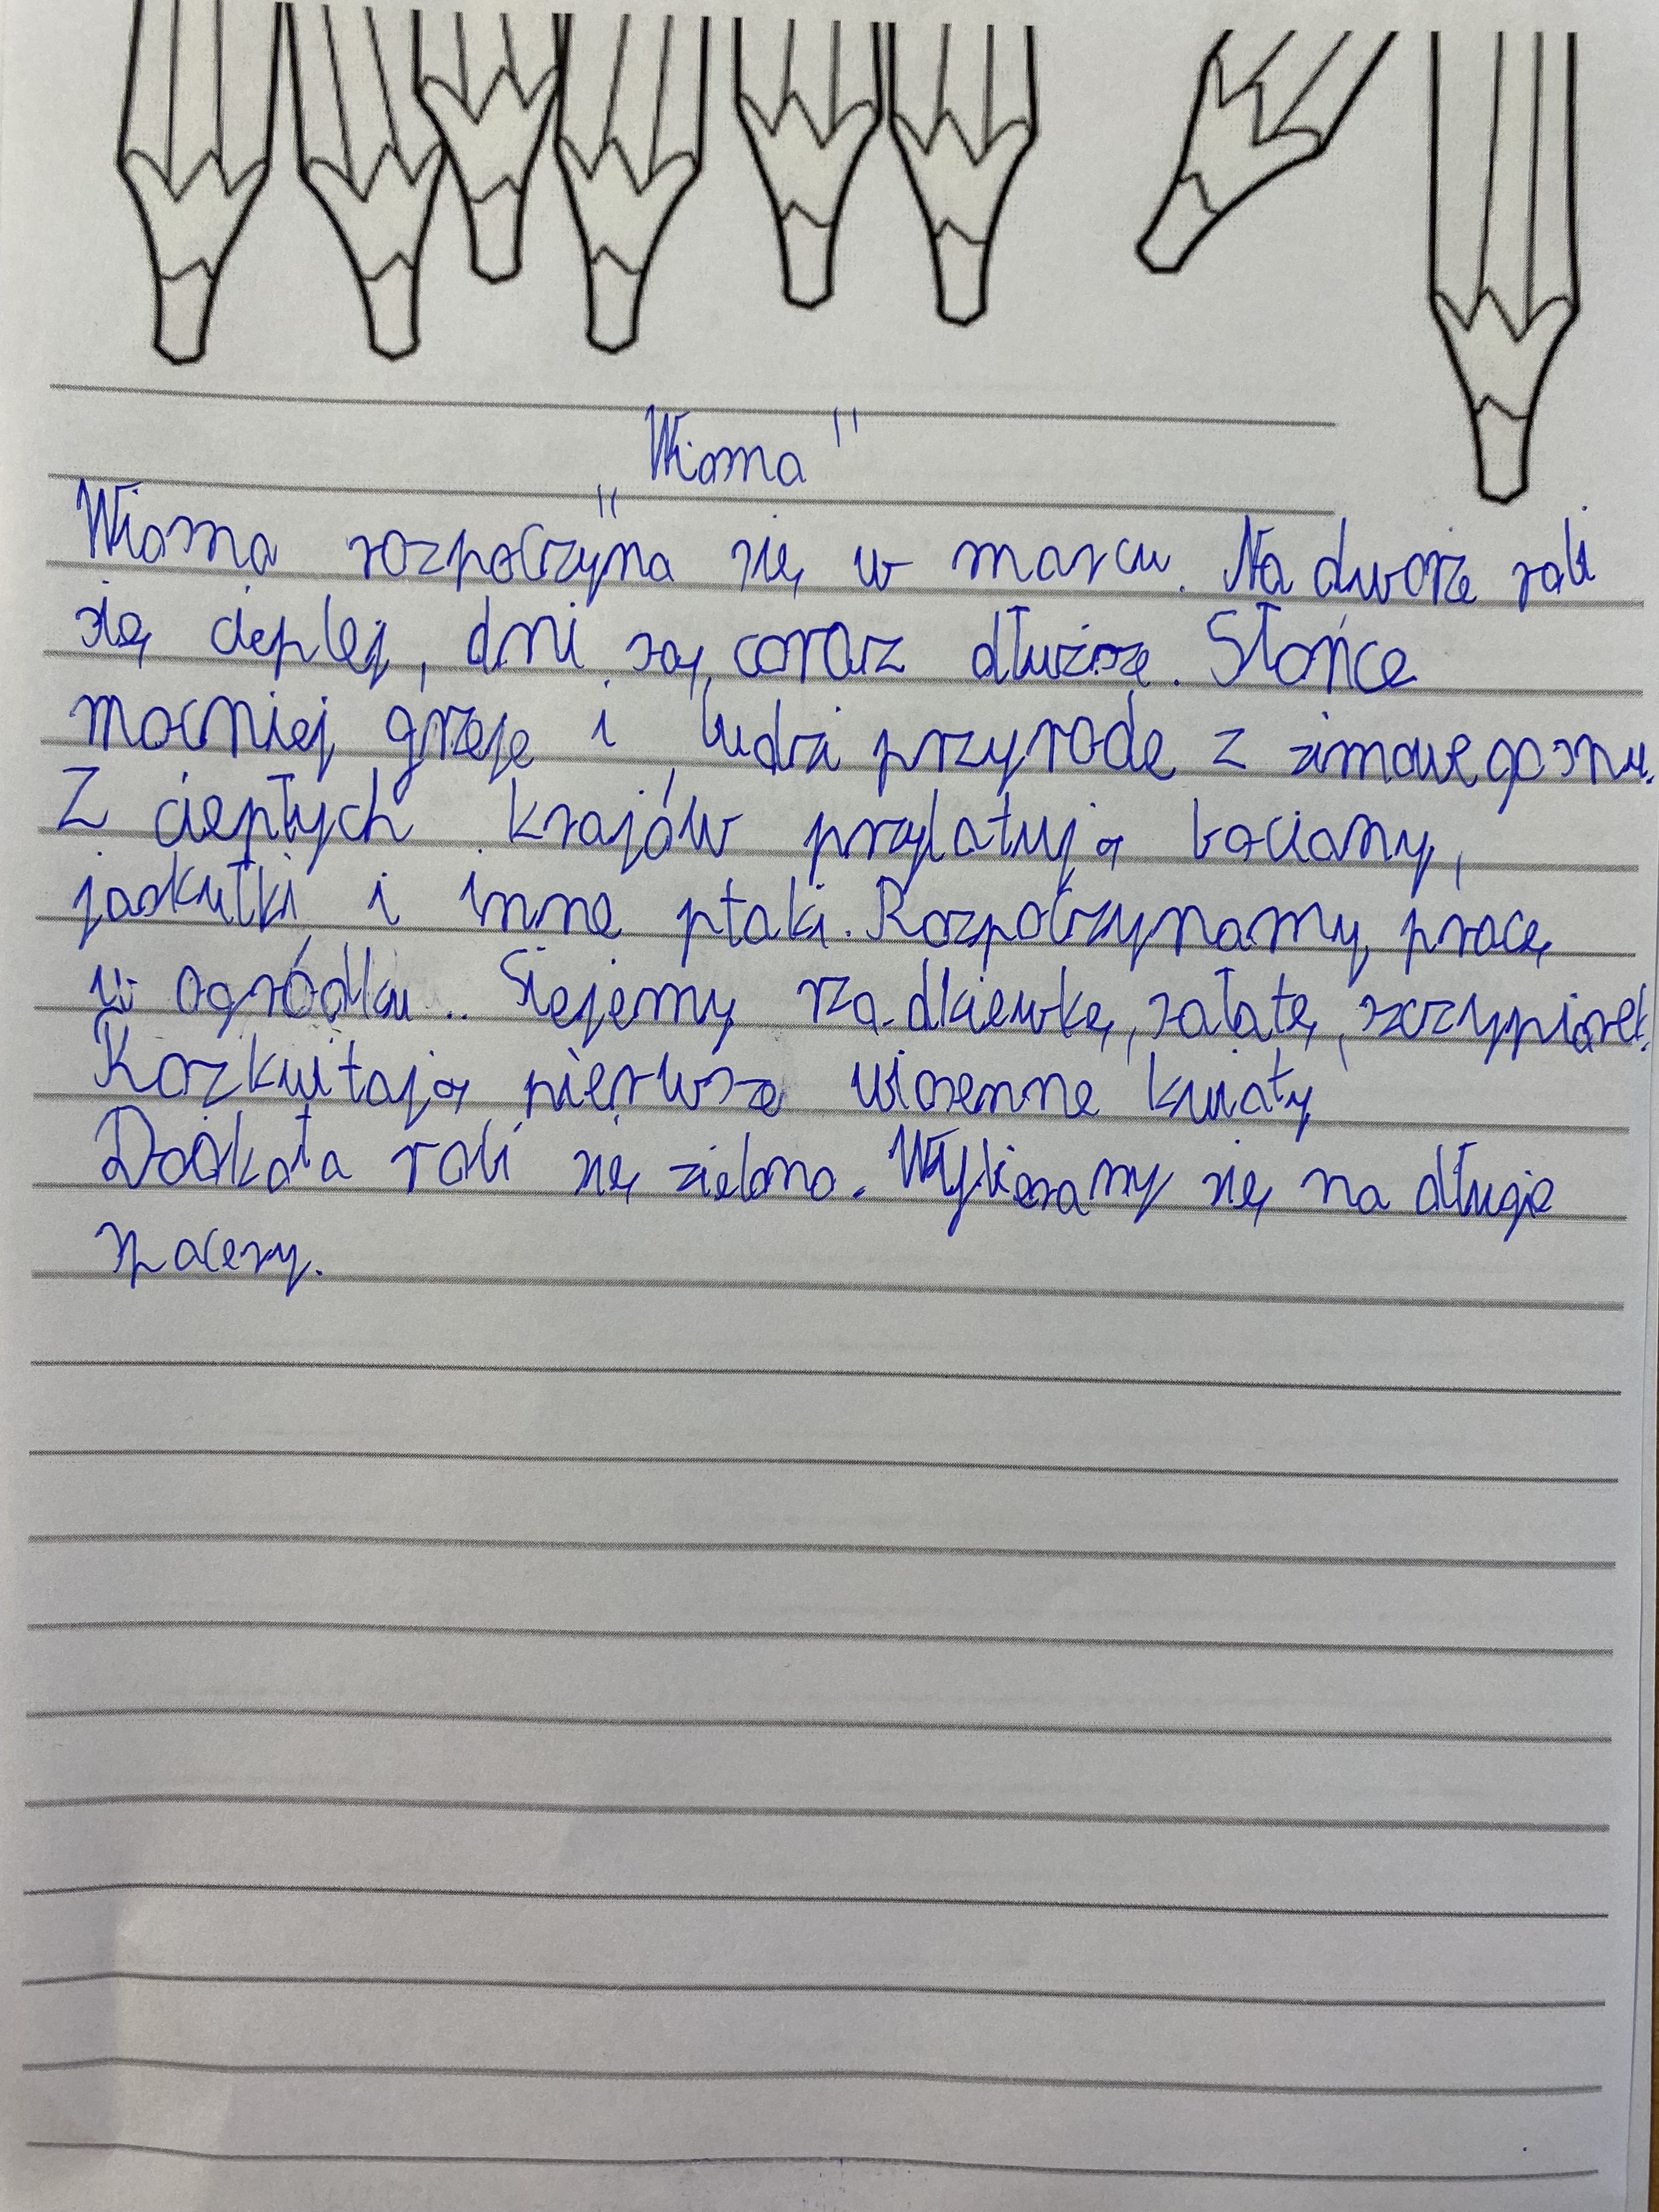 "Wiosna"
Wiosna rozpoczyna się w marcu. Na dworze robi
się cieplej, dni są coraz dłuższe. Słońce
mocniej grzeje i budzi przyrodę z zimowego snu.
Z ciepłych krajów przylatują bociany,
jaskułki i inne ptaki. Rozpoczynamy pracę
w ogródku.. Siejemy rzodkiewkę, sałatę, szczypiorek.
Rozkwitają pierwsze wiosenne kwiaty
Dookoła robi się zielono. Wybieramy się na długie
spacery.